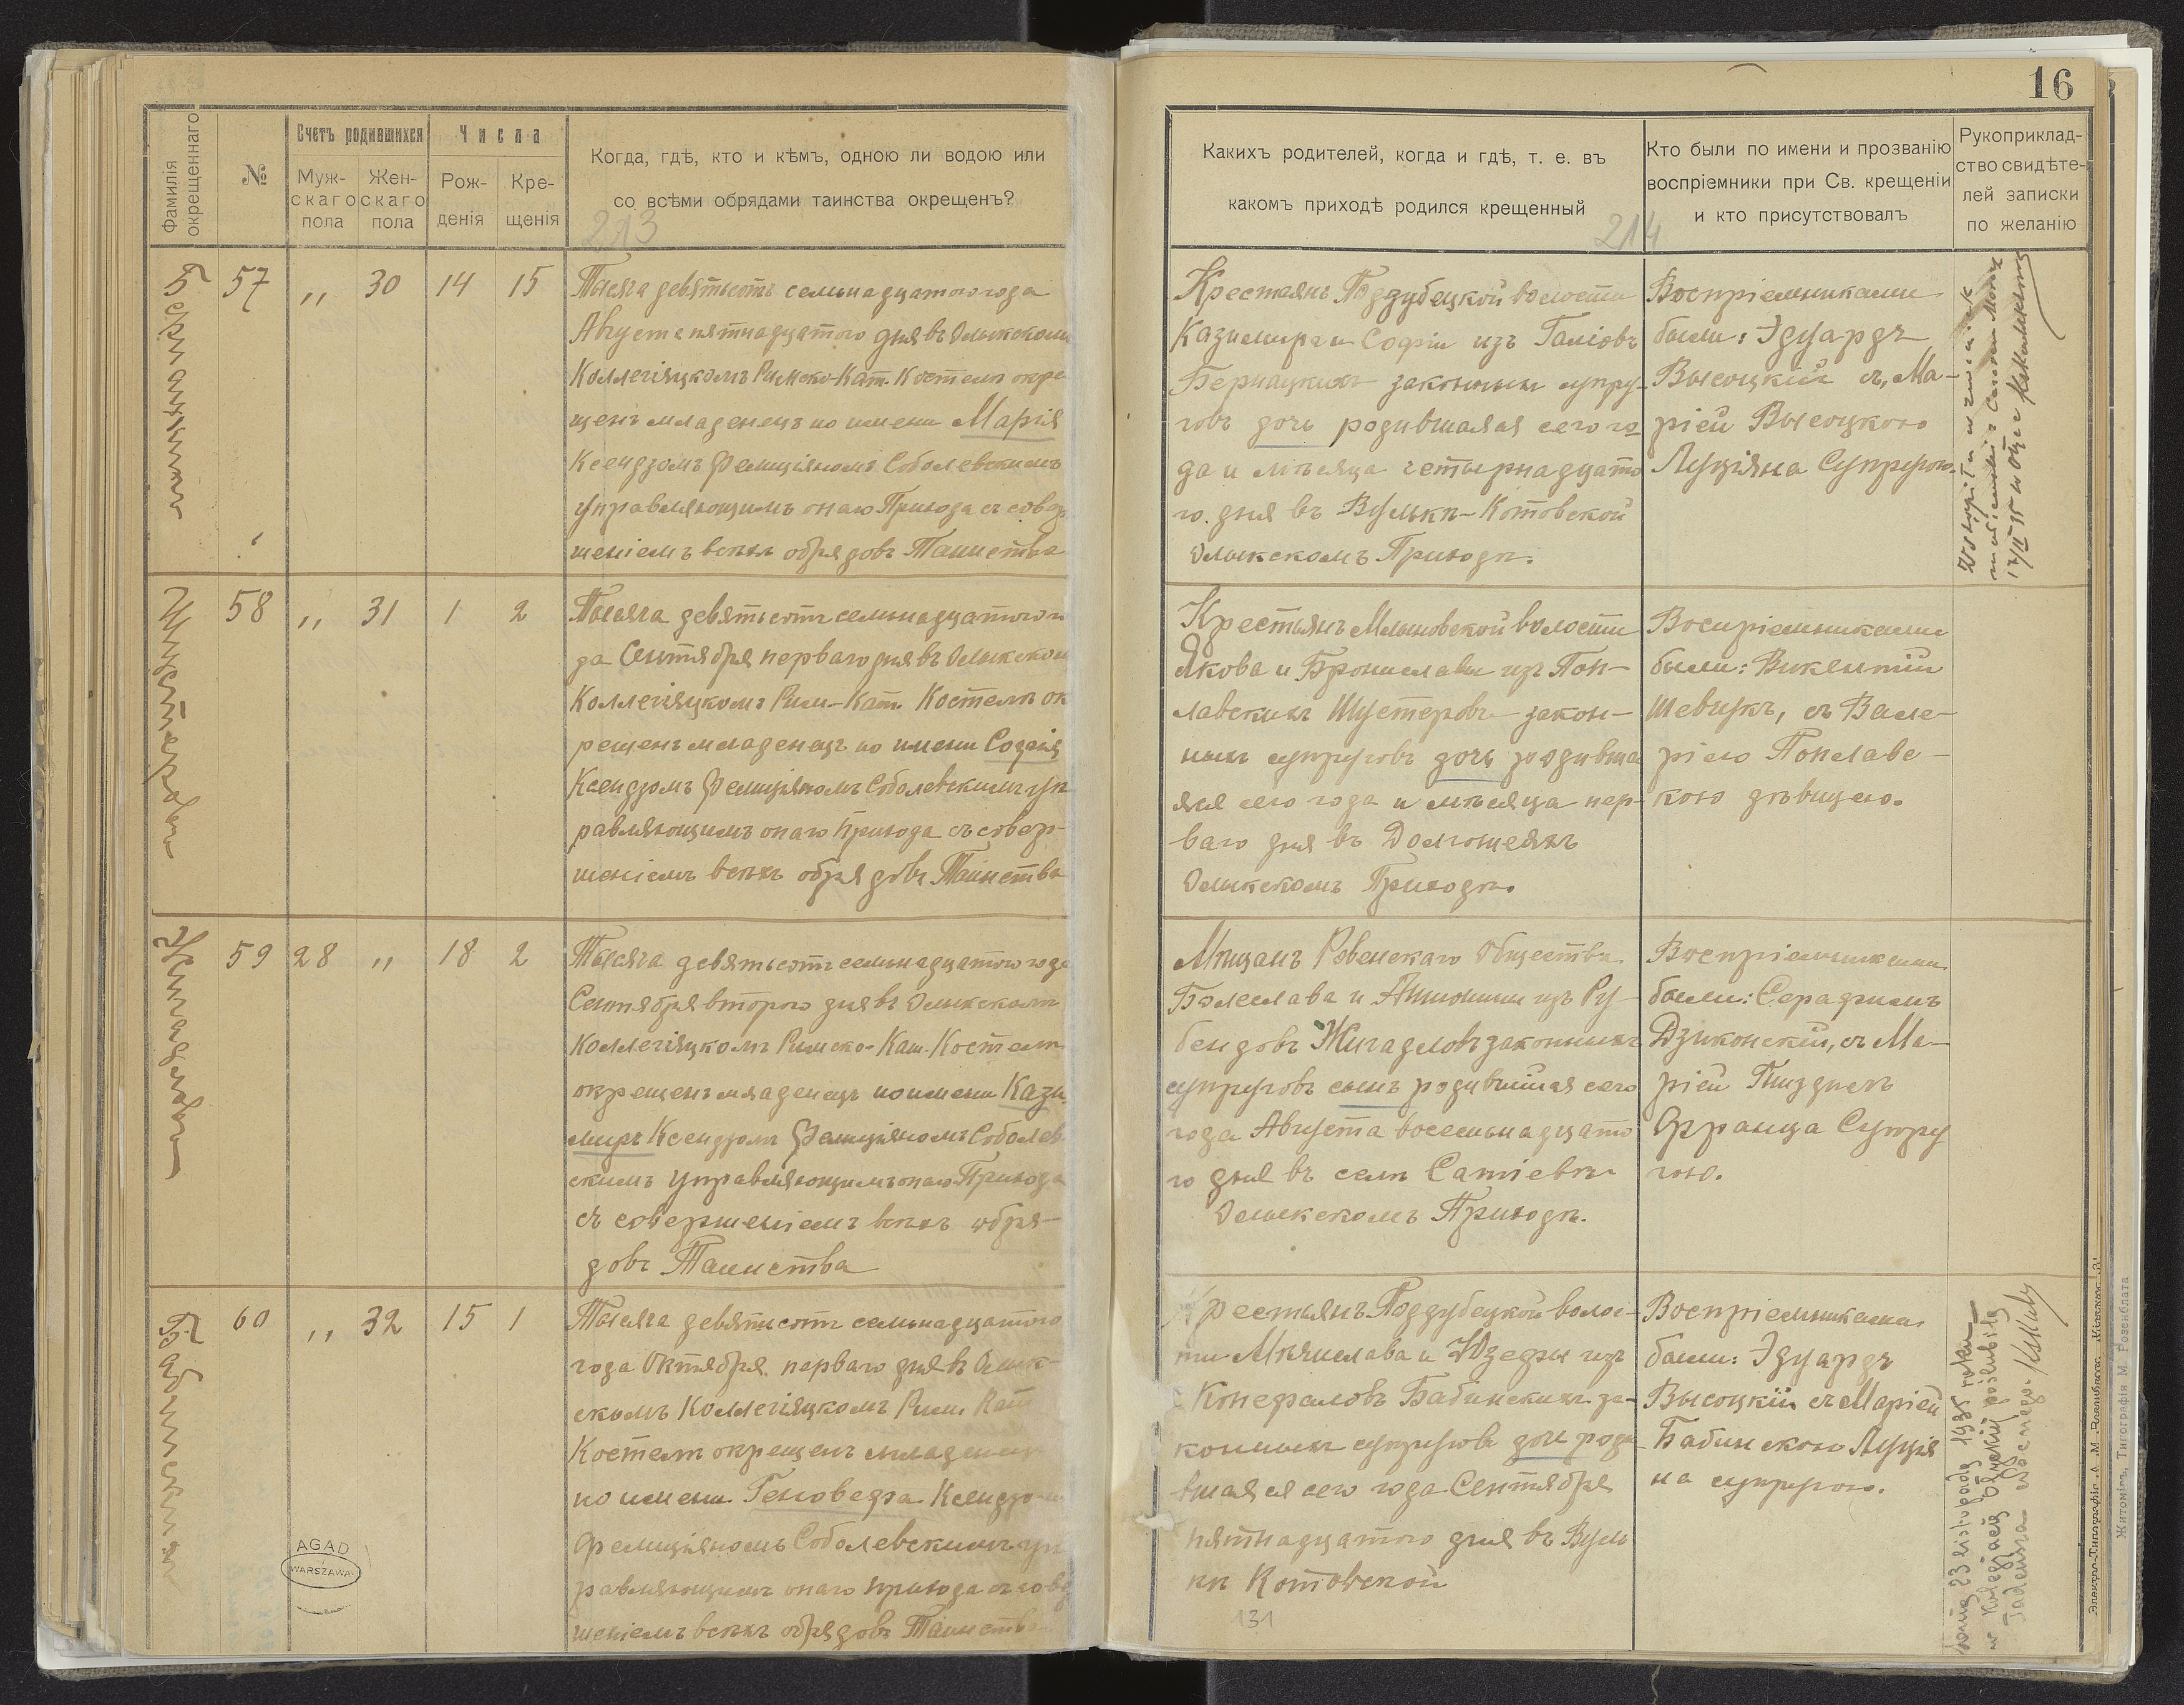 16
Фамилія окрещеннаго
№
Счетъ родившихся
Мужскаго пола
Женскаго пола
Числа
Рожденія
Крещенія
Когда, гдѣ, кто и кѣмъ, одною ли водою или
со всѣми обрядами таинства окрещенъ?
213
Какихъ родителей, когда и гдѣ, т. е. въ
какомъ приходѣ родился крещенный
214
Кто были по имени и прозванію
воспріемники при Св. крещеніи
и кто присутствовалъ
Рукоприклад-
ство свидѣте-
лей записки
по желанію
57 " 30 14 15
Тысяча девятьсотъ семьнадцатого года
Августа пятнадцатого дня въ Олыкскомъ
Коллегіяцкомъ Римско-Кат. Костелѣ окре
щенъ младенецъ по имени Марія
Ксендзомъ Фелиціяномъ Соболевскимъ
управляющимъ онаго Прихода съ совер
шеніемъ всѣхъ обрядовъ Таинства
Крестьянъ Поддубецкой волости
Казимира и Софіи изъ
Бернацкихъ законныхъ супру-
говъ дочь родившаяся сего го
да и мѣсяца четырнадцато
го дня въ Вулькѣ-Котовской
Олыкскомъ Приходѣ.
Воспріемниками
были: Эдуардъ
Высоцкій съ Ма-
ріей Высоцкою
Луціяна Супругою.
58 " 31 1 2
Тысяча девятьсотъ семьнадцатого го
да Сентября перваго дня въ Олыкском
Коллегіяцкомъ Рим-Кат. Костелѣ ок
рещенъ младенецъ по имени Софія
Ксендзомъ Фелиціяномъ Соболевскимъ уп
равляющимъ онаго Прихода съ совер-
шеніемъ всѣхъ обрядовъ Таинства
Крестьянъ Млыновской волости
Якова и Брониславы изъ Поп-
лавскихъ Шустеровъ закон-
ныхъ супруговъ дочь родивша
яся сего года и мѣсяца пер-
ваго дня въ Долгошеяхъ
Олыкскомъ Приходѣ.
Воспріемниками
были: Викентій
Шевчукъ, съ Вале-
ріею Поплавс-
кою дѣвицею.
59 28 " 18 2
Тысяча девятьсотъ семьнадцатого года
Сентября второго дня въ Олыкскомъ
Коллегіяцкомъ Римско-Кат. Костелѣ
окрещенъ младенецъ по имени Кази
миръ Ксендзомъ Фелиціяномъ Соболев
скимъ управляющимъ онаго Прихода
съ совершеніемъ всѣхъ обря-
довъ Таинства
Мѣщанъ Ровенскаго Общества
Болеслава и Антонины изъ Ру-
бендовъ Жигадловъ законныхъ
супруговъ сынъ родившійся сего
года Августа восемьнадцато
го дня въ селѣ Сатіевѣ
Олыкскомъ Приходѣ.
Воспріемниками
были: Серафимъ
Дзиконскій, съ Ма-
ріей
Франца Супру
гою.
60 " 32 15 1
Тысяча девятьсотъ семьнадцатого
года Октября перваго дня въ Олык-
скомъ Коллегіяцкомъ Рим. Кат
Костелѣ окрещенъ младенецъ
по имени Геновефа Ксендзо
Фелиціяномъ Соболевскимъ уп
равляющимъ онаго прихода съ совер
шеніемъ всѣхъ обрядовъ Таинства
рестьянъ Поддубецкой волос-
ти Мѣчислава и Юзефы изъ
Бабинскихъ за-
конныхъ супруговъ дочь роди
вшаяся сего года Сентября
пятнадцатого дня въ Вуль
кѣ Котовской
131
Воспріемниками
были: Эдуардъ
Высоцкій съ Маріей
Бабинскою Луція
на супругою.
23 listopada 1935 roku
AGAD
WARSZAWA
Житоміръ, Типографія М. Розенблата